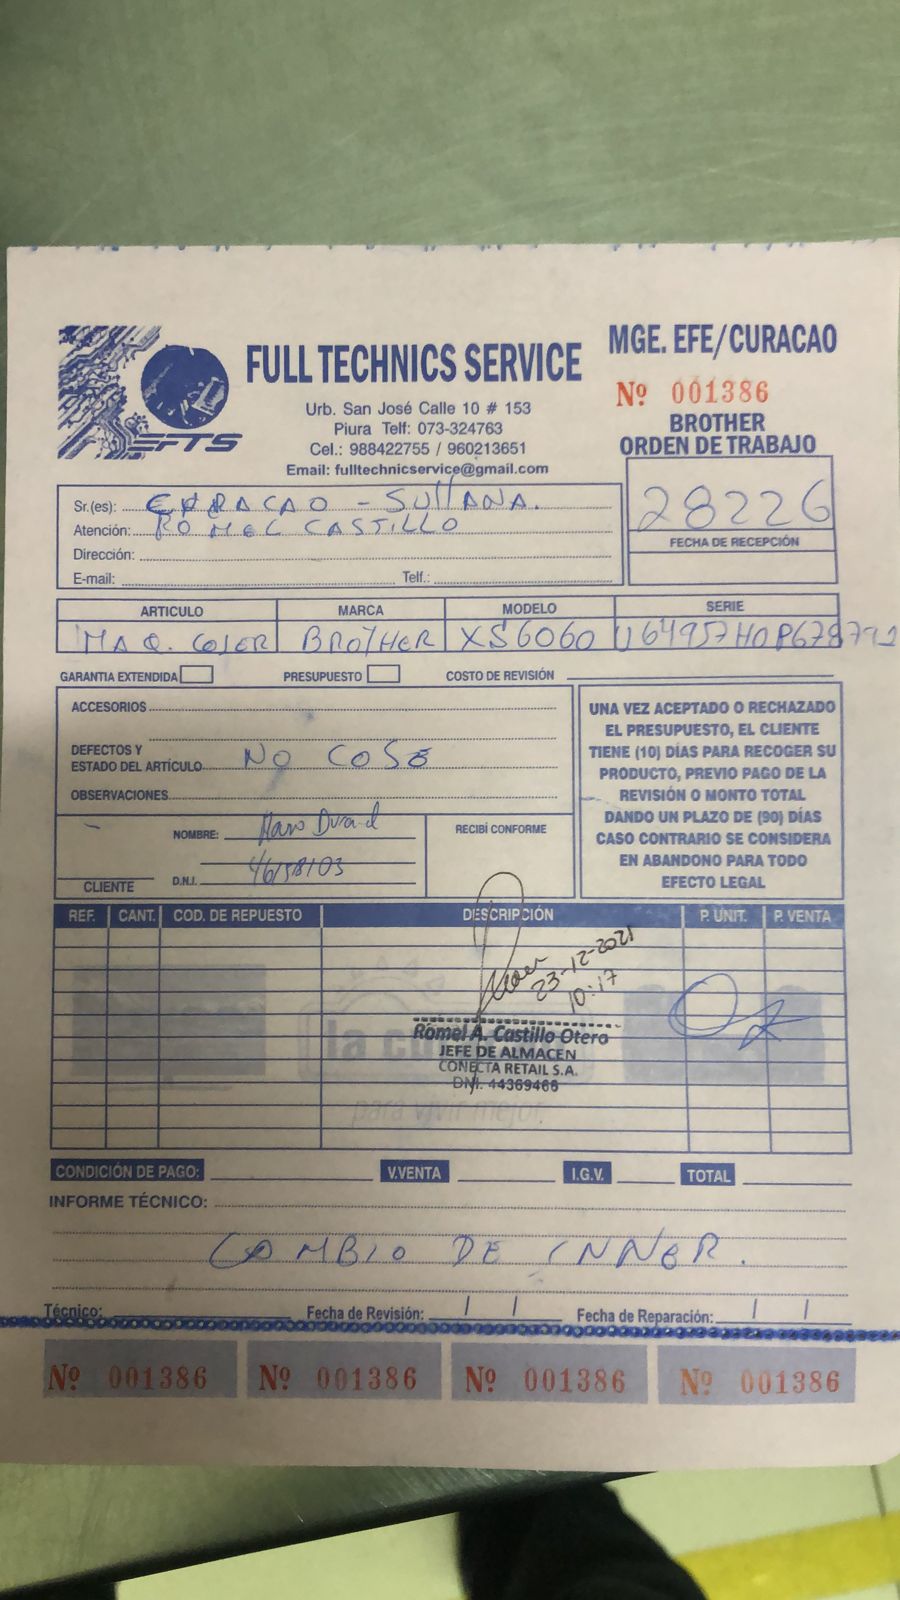 FULL TECHNICS SERVICE
MGE. EFE/CURACAO
Nº 001386
BROTHER
ORDEN DE TRABAJO
EFTS
Urb. San José Calle 10 # 153
Piura Telf: 073-324763
Cel.: 988422755 / 960213651
Email: fulltechnicservice@gmail.com
28226
FECHA DE RECEPCIÓN
Sr.(es): CURACAO - SULLANA.
Atención: ROMEL CASTILLO
Dirección:
E-mail: Telf.:
ARTICULO MARCA MODELO SERIE
MAQ. COSER BROTHER XS6060 U64957H0P678792
GARANTIA EXTENDIDA PRESUPUESTO COSTO DE REVISIÓN
ACCESORIOS
DEFECTOS Y
ESTADO DEL ARTÍCULO NO COSE
OBSERVACIONES
UNA VEZ ACEPTADO O RECHAZADO
EL PRESUPUESTO, EL CLIENTE
TIENE (10) DÍAS PARA RECOGER SU
PRODUCTO, PREVIO PAGO DE LA
REVISIÓN O MONTO TOTAL
DANDO UN PLAZO DE (90) DÍAS
CASO CONTRARIO SE CONSIDERA
EN ABANDONO PARA TODO
EFECTO LEGAL
NOMBRE: Durand
RECIBÍ CONFORME
CLIENTE D.N.I. 46158103
REF. CANT. COD. DE REPUESTO DESCRIPCIÓN P. UNIT. P. VENTA
23-12-2021
10:17
la cu
Romel A. Castillo Otero
JEFE DE ALMACEN
CONECTA RETAIL S.A.
DNI. 44369468
para vivir mejor.
CONDICIÓN DE PAGO: V.VENTA I.G.V. TOTAL
INFORME TÉCNICO:
CAMBIO DE INNER.
Técnico: Fecha de Revisión: / / Fecha de Reparación: / /
Nº 001386 Nº 001386 Nº 001386 Nº 001386